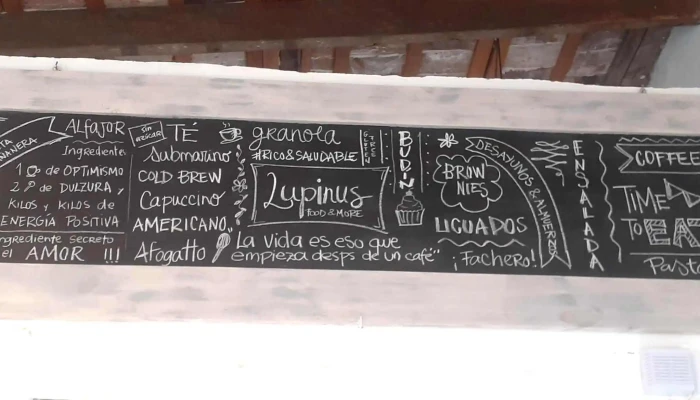 ALFAJOR
Ingrediente
1 de OPTIMISMO
2 de DULZURA Y
KILOS Y KILOS de
ENERGÍA POSITIVA
ingrediente secreto
el AMOR !!!
sin azúcar
TÉ
Submarino
COLD BREW
Capuccino
AMERICANO
Afogatto
granola
#RICO&SALUDABLE
GLUTEN FREE
Lupinus
FOOD & MORE
La vida es eso que
empieza desps de un café"
BUDÍN
BROW
NIES
LIGUADOS
¡Fachero!
DESAYUNOS & ALMUERZOS
ENSALADA
COFFEE
TIME
TO EA
Pasta